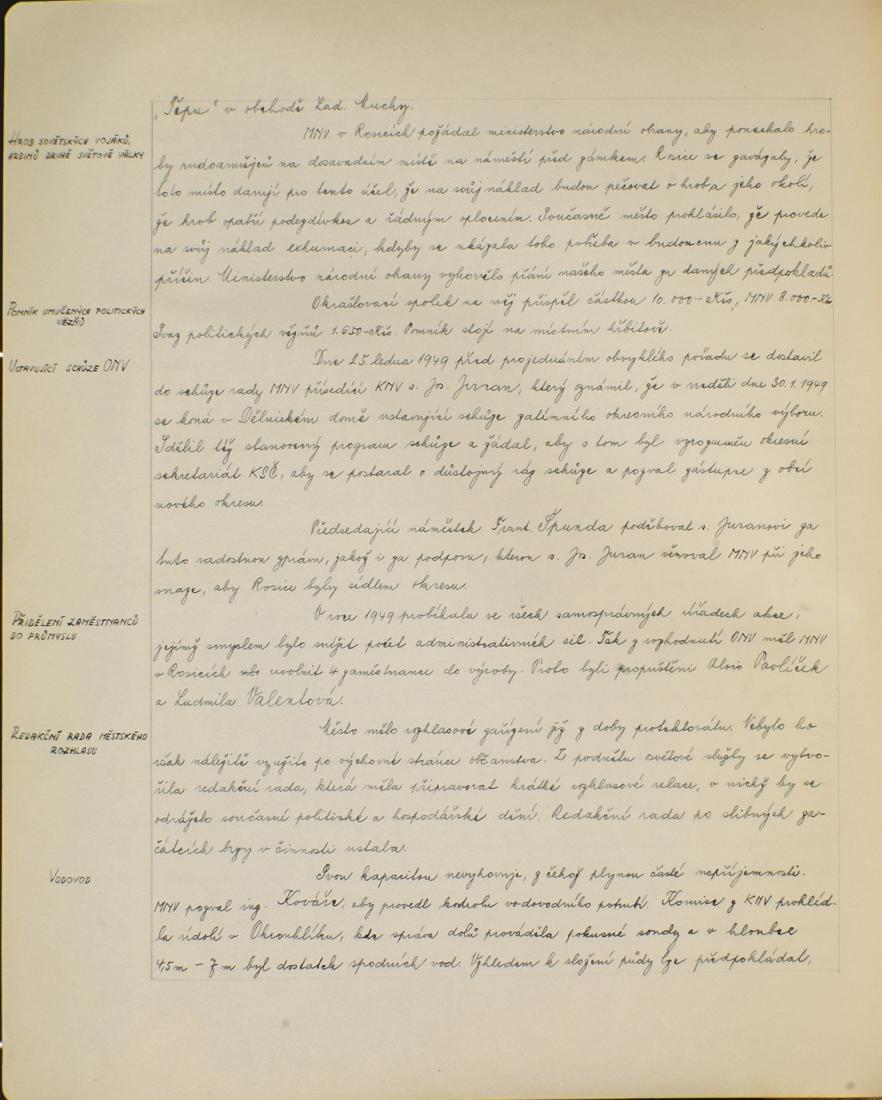 „Tepu" v obchodě Lad. Muchy.
HROB SOVĚTSKÝCH VOJÁKŮ,
HRDINŮ DRUHÉ SVĚTOVÉ VÁLKY
MNV v Rosicích požádal ministerstvo národní obrany, aby ponechalo hro-
by rudoarmějců na dosavadním místě na náměstí před zámkem. Rosice se zavázaly, že
toto místo darují pro tento účel, že na svůj náklad budou pečovat o hrob a jeho okolí,
že hrob opatří podezdívkou a řádným oplocením. Současně město prohlásilo, že provede
na svůj náklad exhumaci, kdyby se ukázala toho potřeba v budoucnu z jakýchkoliv
příčin. Ministerstvo národní obrany vyhovělo přání našeho města za daných předpokladů.
POMNÍK UMUČENÝCH POLITICKÝCH
VĚZŇŮ
Okrašlovací spolek na něj přispěl částkou 10.000-Kčs, MNV 8.000.-Kčs
Svaz politických vězňů 1.650-Kčs. Pomník stojí na místním hřbitově.
USTAVUJÍCÍ SCHŮZE ONV
Dne 25. ledna 1949 před projednáním obvyklého pořadu se dostavil
do schůze rady MNV přísedící KNV s. Js. Juran, který oznámil, že v neděli dne 30.1.1949
se koná v Dělnickém domě ustavující schůze zatímního okresního národního výboru.
Sdělil též stanovený program schůze a žádal, aby o tom byl vyrozuměn okresní
sekretariát KSČ, aby se postaral o důstojný ráz schůze a pozval zástupce z obcí
nového okresu.
Předsedající náměstek Frant. Špunda poděkoval s. Juranovi za
tuto radostnou zprávu, jakož i za podporu, kterou s. Js. Juran věnoval MNV při jeho
snaze, aby Rosice byly sídlem okresu.
PŘIDĚLENÍ ZAMĚSTNANCŮ
DO PRŮMYSLU
V roce 1949 probíhala ve všech samosprávných úřadech akce,
jejímž smyslem bylo snížit počet administrativních sil. Tak z rozhodnutí ONV měl MNV
v Rosicích uvolnit 4 zaměstnance do výroby. Proto byli propuštěni Alois Pavlíček
a Ludmila Valentová.
REDAKČNÍ RADA MĚSTSKÉHO
ROZHLASU
Město mělo rozhlasové zařízení již z doby protektorátu. Nebylo ho
však náležitě využito po výchovné stránce občanstva. Z podnětu osvětové služby se vytvo-
řila redakční rada, která měla připravovat krátké rozhlasové relace, v nichž by se
odráželo současné politické a hospodářské dění. Redakční rada po slibných za-
čátcích brzy v činnosti ustala.
VODOVOD
Svou kapacitou nevyhovuje, z čehož plynou časté nepříjemnosti.
MNV pozval ing. Kováře, aby provedl kontrolu vodovodního potrubí. Komise z KNV prohléd-
la údolí v Okrouhlíku, kde správa dolů prováděla pokusné sondy a v hloubce
4,5m – 7m byl dostatek spodních vod. Vzhledem k složení půdy lze předpokládat,